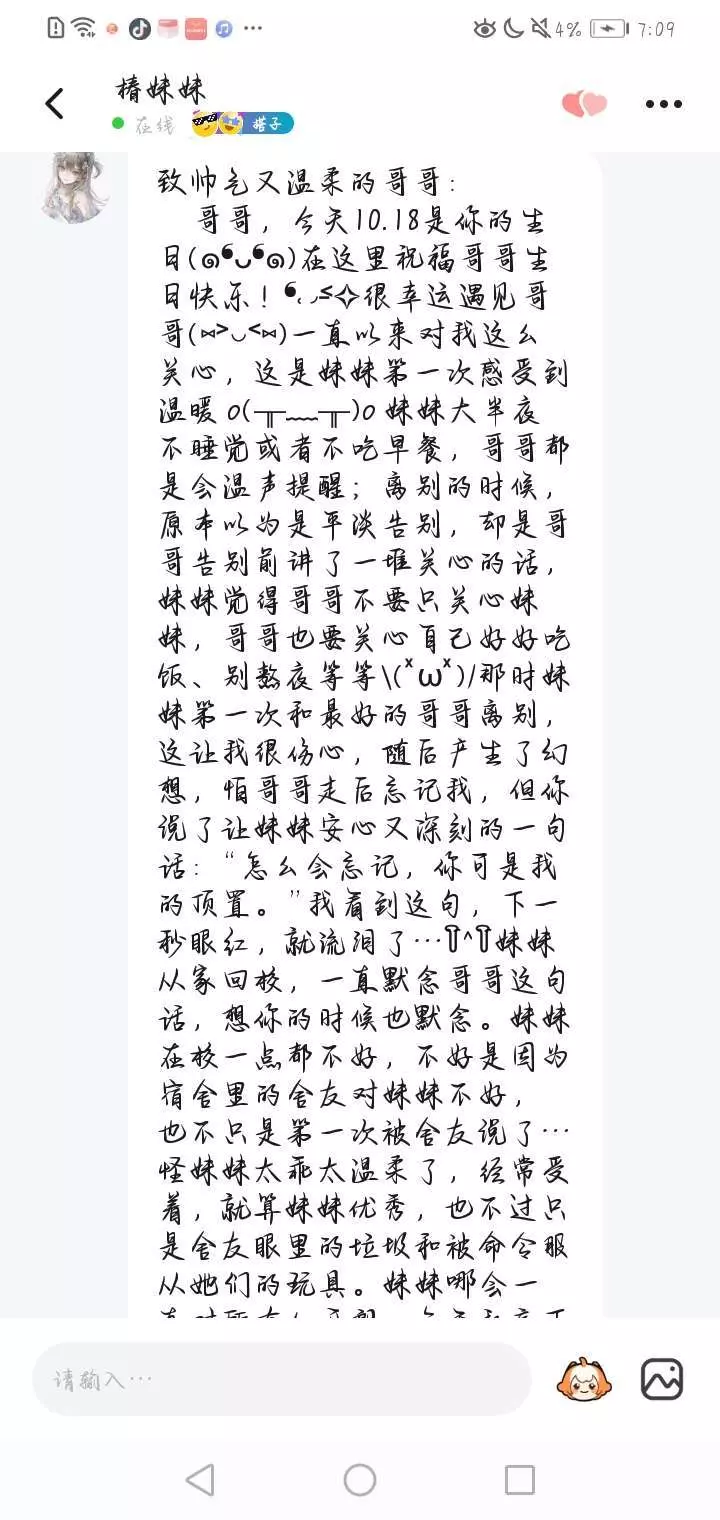 4% 7:09
椿妹妹
在线 搭子
致帅气又温柔的哥哥：
哥哥，今天10.18是你的生
日(๑❛ᴗ❛๑)在这里祝福哥哥生
日快乐！❛‿˂̵✧很幸运遇见哥
哥(⋈>◡<⋈)一直以来对我这么
关心，这是妹妹第一次感受到
温暖 o(╥﹏╥)o 妹妹大半夜
不睡觉或者不吃早餐，哥哥都
是会温声提醒；离别的时候，
原本以为是平淡告别，却是哥
哥告别前讲了一堆关心的话，
妹妹觉得哥哥不要只关心妹
妹，哥哥也要关心自己好好吃
饭、别熬夜等等\(˟ω˟)/那时妹
妹第一次和最好的哥哥离别，
这让我很伤心，随后产生了幻
想，怕哥哥走后忘记我，但你
说了让妹妹安心又深刻的一句
话：“怎么会忘记，你可是我
的顶置。”我看到这句，下一
秒眼红，就流泪了…T^T妹妹
从家回校，一直默念哥哥这句
话，想你的时候也默念。妹妹
在校一点都不好，不好是因为
宿舍里的舍友对妹妹不好，
也不只是第一次被舍友说了…
怪妹妹太乖太温柔了，经常受
着，就算妹妹优秀，也不过只
是舍友眼里的垃圾和被命令服
从她们的玩具。妹妹哪会一
请输入…